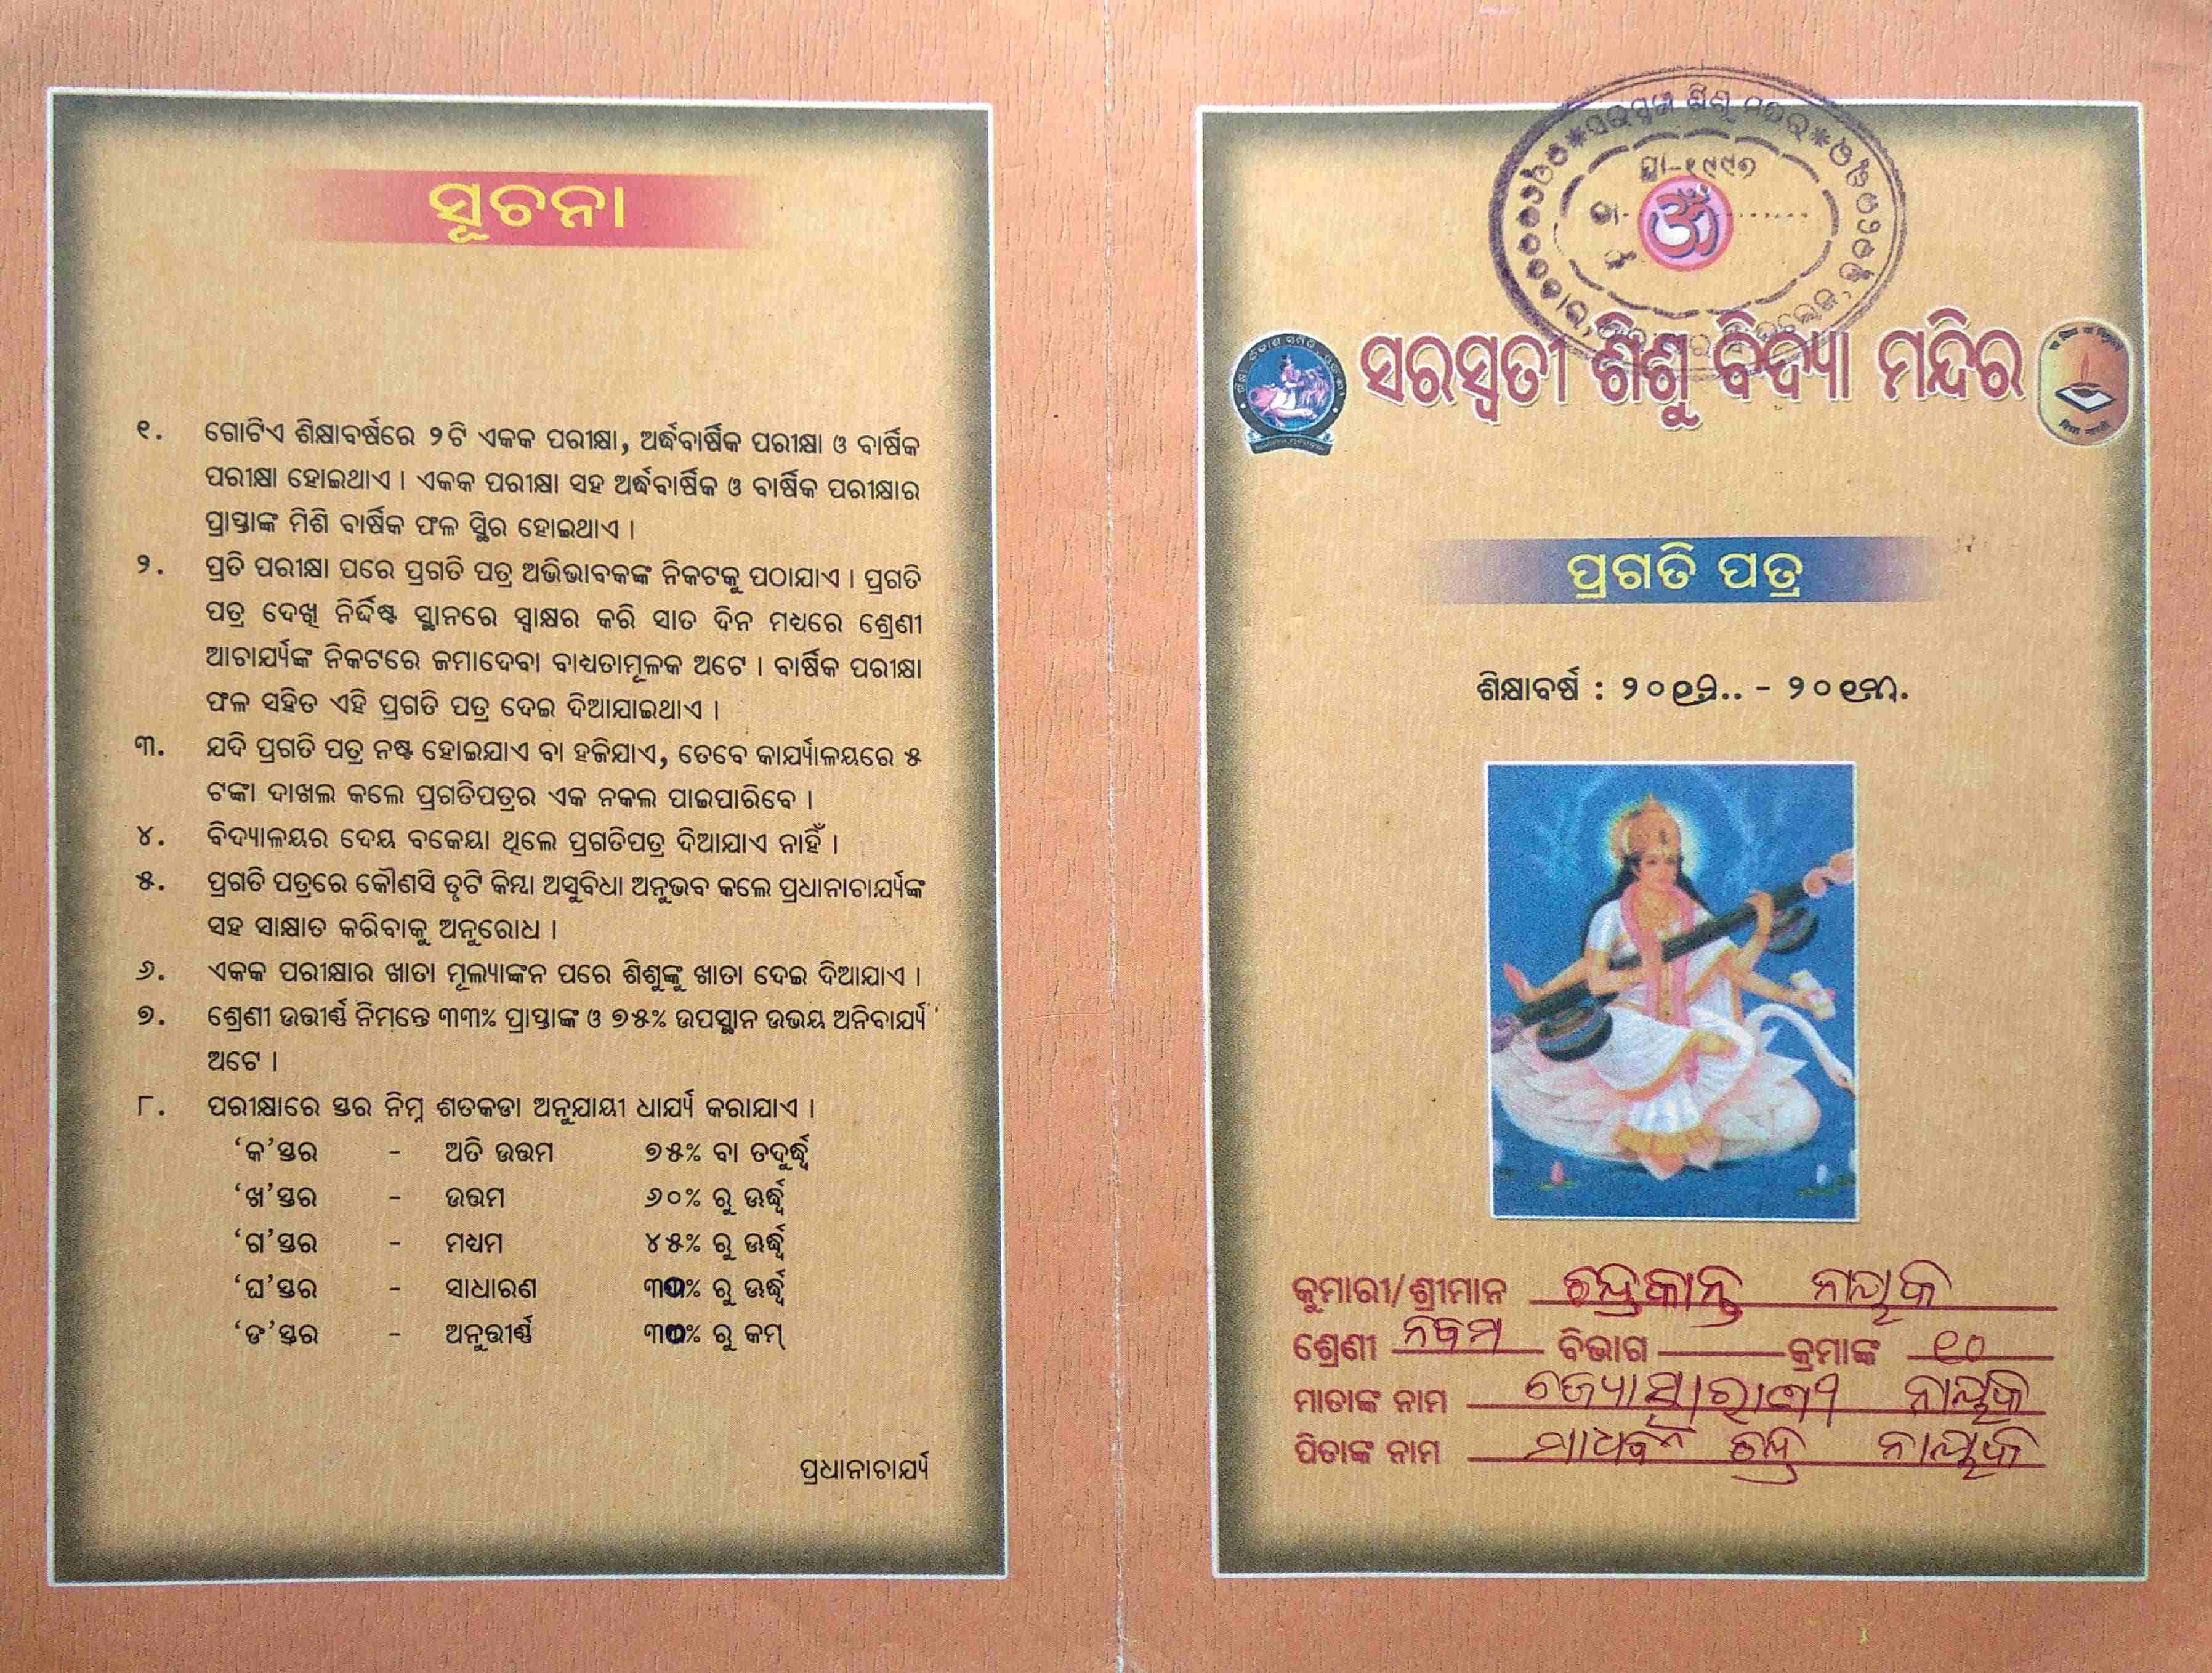 ସୂଚନା
୧. ଗୋଟିଏ ଶିକ୍ଷାବର୍ଷରେ ୨ଟି ଏକକ ପରୀକ୍ଷା, ଅର୍ଦ୍ଧବାର୍ଷିକ ପରୀକ୍ଷା ଓ ବାର୍ଷିକ
ପରୀକ୍ଷା ହୋଇଥାଏ । ଏକକ ପରୀକ୍ଷା ସହ ଅର୍ଦ୍ଧବାର୍ଷିକ ଓ ବାର୍ଷିକ ପରୀକ୍ଷାର
ପ୍ରାପ୍ତାଙ୍କ ମିଶି ବାର୍ଷିକ ଫଳ ସ୍ଥିର ହୋଇଥାଏ ।
୨. ପ୍ରତି ପରୀକ୍ଷା ପରେ ପ୍ରଗତି ପତ୍ର ଅଭିଭାବକଙ୍କ ନିକଟକୁ ପଠାଯାଏ । ପ୍ରଗତି
ପତ୍ର ଦେଖି ନିର୍ଦ୍ଦିଷ୍ଟ ସ୍ଥାନରେ ସ୍ୱାକ୍ଷର କରି ସାତ ଦିନ ମଧ୍ୟରେ ଶ୍ରେଣୀ
ଆଚାର୍ଯ୍ୟଙ୍କ ନିକଟରେ ଜମାଦେବା ବାଧ୍ୟତାମୂଳକ ଅଟେ । ବାର୍ଷିକ ପରୀକ୍ଷା
ଫଳ ସହିତ ଏହି ପ୍ରଗତି ପତ୍ର ଦେଇ ଦିଆଯାଇଥାଏ ।
୩. ଯଦି ପ୍ରଗତି ପତ୍ର ନଷ୍ଟ ହୋଇଯାଏ ବା ହଜିଯାଏ, ତେବେ କାର୍ଯ୍ୟାଳୟରେ ୫
ଟଙ୍କା ଦାଖଲ କଲେ ପ୍ରଗତିପତ୍ରର ଏକ ନକଲ ପାଇପାରିବେ ।
୪. ବିଦ୍ୟାଳୟର ଦେୟ ବକେୟା ଥିଲେ ପ୍ରଗତିପତ୍ର ଦିଆଯାଏ ନାହିଁ ।
୫. ପ୍ରଗତି ପତ୍ରରେ କୌଣସି ତୃଟି କିମ୍ଭା ଅସୁବିଧା ଅନୁଭବ କଲେ ପ୍ରଧାନାଚାର୍ଯ୍ୟଙ୍କ
ସହ ସାକ୍ଷାତ କରିବାକୁ ଅନୁରୋଧ ।
୬. ଏକକ ପରୀକ୍ଷାର ଖାତା ମୂଲ୍ୟାଙ୍କନ ପରେ ଶିଶୁଙ୍କୁ ଖାତା ଦେଇ ଦିଆଯାଏ ।
୭. ଶ୍ରେଣୀ ଉତ୍ତୀର୍ଣ୍ଣ ନିମନ୍ତେ ୩୩% ପ୍ରାପ୍ତାଙ୍କ ଓ ୭୫% ଉପସ୍ଥାନ ଉଭୟ ଅନିବାର୍ଯ୍ୟ
ଅଟେ ।
୮. ପରୀକ୍ଷାରେ ସ୍ତର ନିମ୍ନ ଶତକଡା ଅନୁଯାୟୀ ଧାର୍ଯ୍ୟ କରାଯାଏ ।
‘କ’ସ୍ତର - ଅତି ଉତ୍ତମ ୭୫% ବା ତଦୁର୍ଦ୍ଧ୍ୱ
‘ଖ’ସ୍ତର - ଉତ୍ତମ ୬୦% ରୁ ଊର୍ଦ୍ଧ୍ୱ
‘ଗ’ସ୍ତର - ମଧ୍ୟମ ୪୫% ରୁ ଊର୍ଦ୍ଧ୍ୱ
‘ଘ’ସ୍ତର - ସାଧାରଣ ରୁ ଊର୍ଦ୍ଧ୍ୱ
‘ଙ’ସ୍ତର - ଅନୁତ୍ତୀର୍ଣ୍ଣ ରୁ କମ୍
ପ୍ରଧାନାଚାର୍ଯ୍ୟ
ସ୍ଥା-୧୯୯୭
ସରସ୍ୱତୀ ଶିଶୁ ବିଦ୍ୟା ମନ୍ଦିର
ପ୍ରଗତି ପତ୍ର
ଶିକ୍ଷାବର୍ଷ :
କୁମାରୀ/ଶ୍ରୀମାନ ଚନ୍ଦ୍ରକାନ୍ତ ନାୟକ
ଶ୍ରେଣୀ ନବମ ବିଭାଗ କ୍ରମାଙ୍କ ୧୦
ମାତାଙ୍କ ନାମ ନାୟକ
ପିତାଙ୍କ ନାମ ମାଧବ ଚନ୍ଦ୍ର ନାୟକ